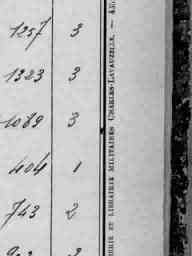 1257 3
1323 3
1089 3
404 1
743 2
MERIE ET LIBRAIRIE MILITAIRES CHARLES-LAVAUZELLE. —